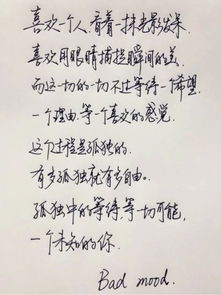 喜欢一个人，看着一抹光景发呆
喜欢用眼睛捕捉瞬间的美
而这一切的一切不过等待一个希望
一个理由，等一个喜欢的感觉
这个过程是孤独的。
有多孤独就有多自由。
孤独中的等待，等一切可能，
一个未知的你
Bad mood.